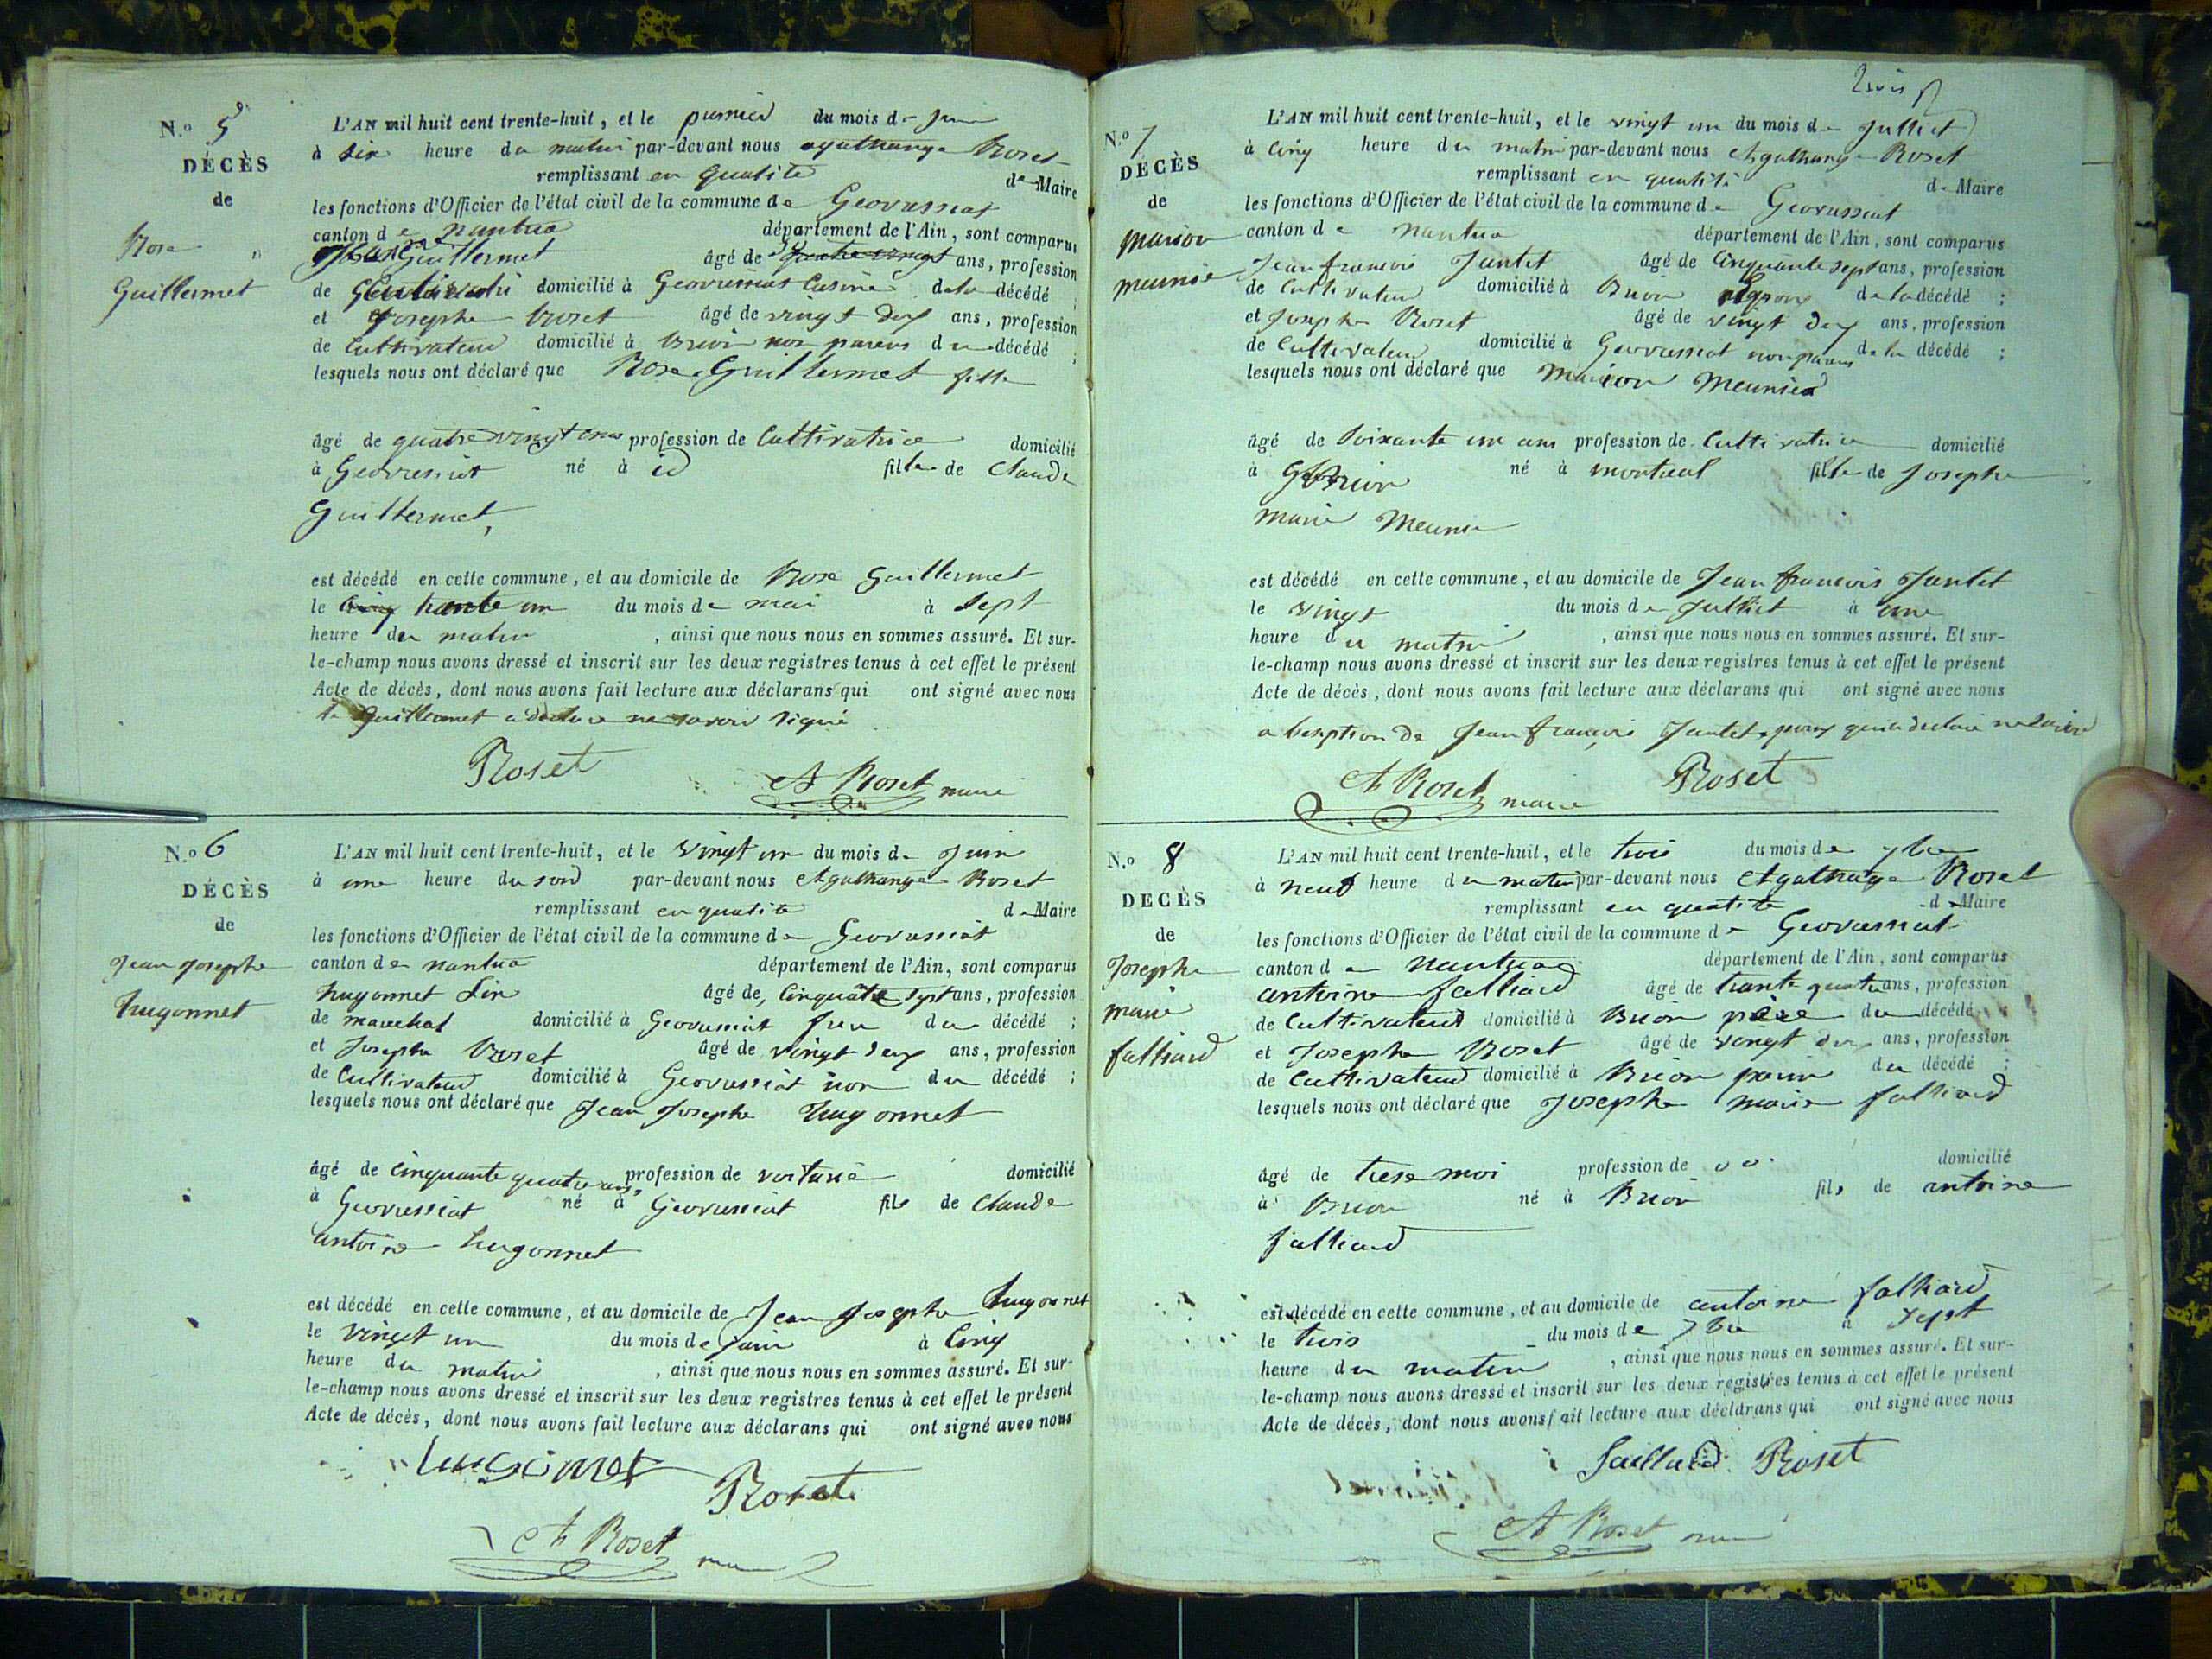 N.o 5
DÉCÈS
de
Rose
Guillermet
L'AN mil huit cent trente-huit, et le premier du mois de juin
à six heure du matin par-devant nous agathange Roset
remplissant en qualité de Maire
les fonctions d'Officier de l'état civil de la commune de Geovressiat
canton de nantua département de l'Ain, sont comparus
Guillermet âgé de ans, profession
de domicilié à Geovressiat Cusine de la décédé ;
et Josephe Roset âgé de vingt deux ans, profession
de Cultivateur domicilié à Brion non parens du décédé ;
lesquels nous ont déclaré que Rose Guillermet fille
âgé de quatre vingt profession de Cultivatrice domicilié
à Geovressiat né à id fille de Claude
Guillermet,
est décédé en cette commune, et au domicile de Rose Guillermet
le trente un du mois de mai à sept
heure du matin , ainsi que nous nous en sommes assuré. Et sur-
le-champ nous avons dressé et inscrit sur les deux registres tenus à cet effet le présent
Acte de décès, dont nous avons fait lecture aux déclarans qui ont signé avec nous
le Guillermet a déclaré ne savoir signé
Roset At Roset maire
N.o 6
DÉCÈS
de
Jean Josephe
hugonnet
L'AN mil huit cent trente-huit, et le vingt un du mois de Juin
à une heure du soir par-devant nous Agathange Roset
remplissant en qualite de Maire
les fonctions d'Officier de l'état civil de la commune de Geovressiat
canton de nantua département de l'Ain, sont comparus
hugonnet Lin âgé de Cinquate sept ans, profession
de marechal domicilié à Geovressiat frere du décédé ;
et Josephe Roset âgé de vingt deux ans, profession
de Cultivateur domicilié à Geovressiat non du décédé ;
lesquels nous ont déclaré que Jean Josephe hugonnet
âgé de Cinquante quatre ans, profession de voiturié domicilié
à Geovressiat né à Geovressiat fils de Claude
antoine hugonnet
est décédé en cette commune, et au domicile de Jean Josephe hugonnet
le vingt un du mois de juin à Cinq
heure du matin , ainsi que nous nous en sommes assuré. Et sur-
le-champ nous avons dressé et inscrit sur les deux registres tenus à cet effet le présent
Acte de décès, dont nous avons fait lecture aux déclarans qui ont signé avec nous
Roset
At Roset maire
trois
N.o 7
DÉCÈS
de
marion
meunié
L'AN mil huit cent trente-huit, et le vingt un du mois de Julliet
à Cinq heure du matin par-devant nous Agathange Roset
remplissant en qualité de Maire
les fonctions d'Officier de l'état civil de la commune de Geovressiat
canton de nantua département de l'Ain, sont comparus
Jean francois Jantet âgé de Cinquante sept ans, profession
de Cultivateur domicilié à Brion de la décédé ;
et Josephe Roset âgé de vingt deux ans, profession
de Cultivateur domicilié à Geovressiat non parens de la décédé ;
lesquels nous ont déclaré que Marion Meunier
âgé de Soixante un ans profession de Cultivatrice domicilié
à Brion né à montreal fille de Josephe
marie Meunie
est décédé en cette commune, et au domicile de Jean francois Jantet
le vingt du mois de Julliet à une
heure du matin , ainsi que nous nous en sommes assuré. Et sur-
le-champ nous avons dressé et inscrit sur les deux registres tenus à cet effet le présent
Acte de décès, dont nous avons fait lecture aux déclarans qui ont signé avec nous
a lexeption de Jean françois Jantet qui a declaré ne
At Roset maire Roset
N.o 8
DÉCÈS
de
Josephe
marie
falliard
L'AN mil huit cent trente-huit, et le trois du mois de 7bre
à neuf heure du matin par-devant nous Agathage Roset
remplissant en qualite de Maire
les fonctions d'Officier de l'état civil de la commune de Geovressiat
canton de nantua département de l'Ain, sont comparus
antoine falliard âgé de trante quatre ans, profession
de Cultivateur domicilié à Brion père du décédé ;
et Josephe Roset âgé de vingt deux ans, profession
de Cultivateur domicilié à Brion du décédé ;
lesquels nous ont déclaré que Josephe marie falliard
âgé de trese moi profession de domicilié
à Brion né à Brion fils de antoine
falliard
est décédé en cette commune, et au domicile de antoine falliard
le trois du mois de 7bre à sept
heure du matin , ainsi que nous nous en sommes assuré. Et sur-
le-champ nous avons dressé et inscrit sur les deux registres tenus à cet effet le présent
Acte de décès, dont nous avons fait lecture aux déclarans qui ont signé avec nous
Saillard Roset
At Roset maire